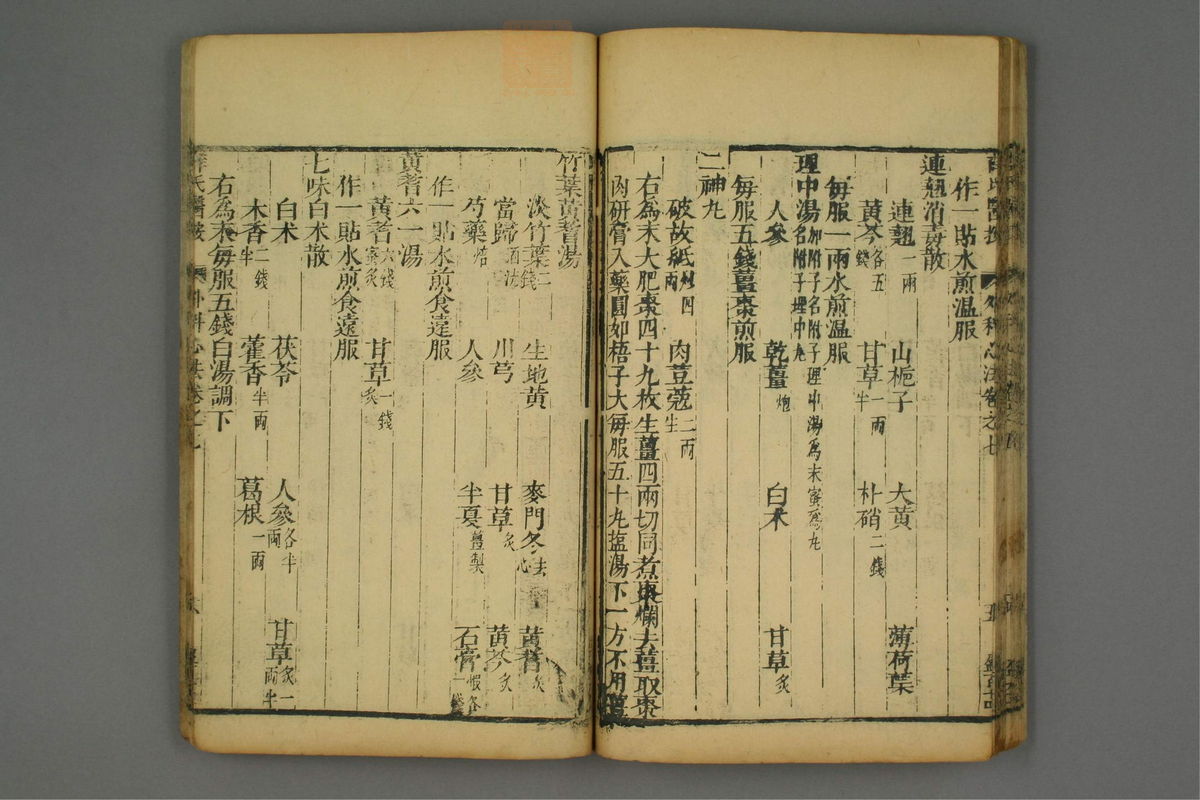 作一貼水煎温服
連翹消毒散
連翹一兩 山梔子 大黄 薄荷葉
黄芩各五錢 甘草一兩半 朴硝二錢
每服一兩水煎温服
理中湯加附子名附子理中湯為末蜜為丸名附子理中丸
人參 乾薑炮 白朮 甘草炙
每服五錢薑棗煎服
二神丸
破故紙炒四兩 肉荳蔻二兩生
右為末大肥棗四十九枚生薑四兩切同煮棗爛去薑取棗
肉研膏入藥圓如梧子大每服五十丸塩湯下一方不用薑
竹葉黄耆湯
淡竹葉二錢 生地黄 麥門冬去心 黄耆炙
當歸酒洗 川芎 甘草炙 黄芩炙
芍藥焙 人參 半夏薑製 石膏煆各一錢
作一貼水煎食遠服
黄耆六一湯
黄耆六錢蜜炙 甘草一錢炙
作一貼水煎食遠服
七味白朮散
白朮 茯苓 人參各半兩 甘草炙一兩半
木香二錢半 藿香半兩 葛根一兩
右為末每服五錢白湯調下
薛氏醫按 外科心法卷之七